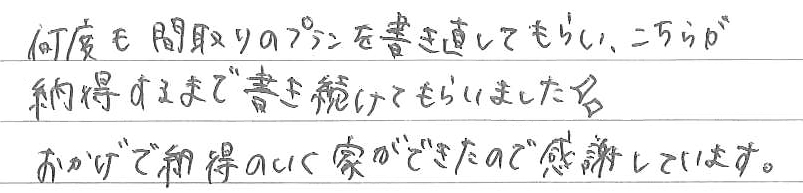 何度も間取りのプランを書き直してもらい、こちらが
納得するまで書き続けてもらいました☆
おかげで納得のいく家ができたので感謝しています。